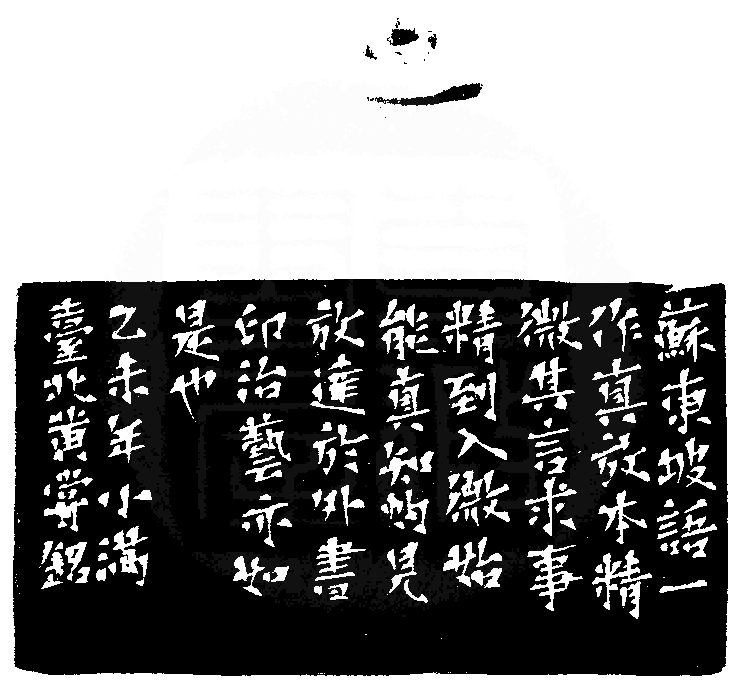 蘇東坡語一
作真放本精
微其言求事
精到入微始
能真知灼見
放達於外書
印治藝亦如
是也
乙未年小滿
臺北黃嘗銘